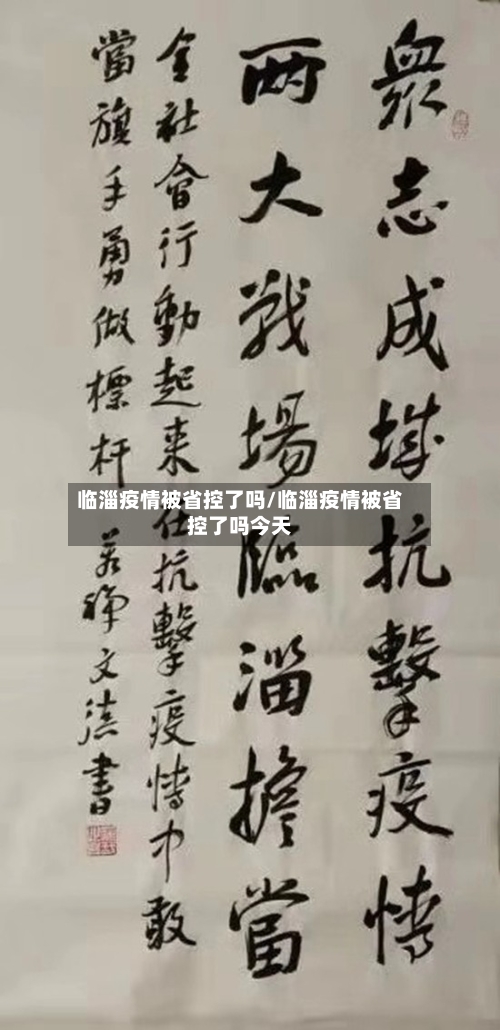 众志成城抗擊疫情
两大戰場臨淄擔當
全社會行動起来在抗擊疫情中敢
當旗手勇做標杆
文德書
临淄疫情被省控了吗/临淄疫情被省
控了吗今天